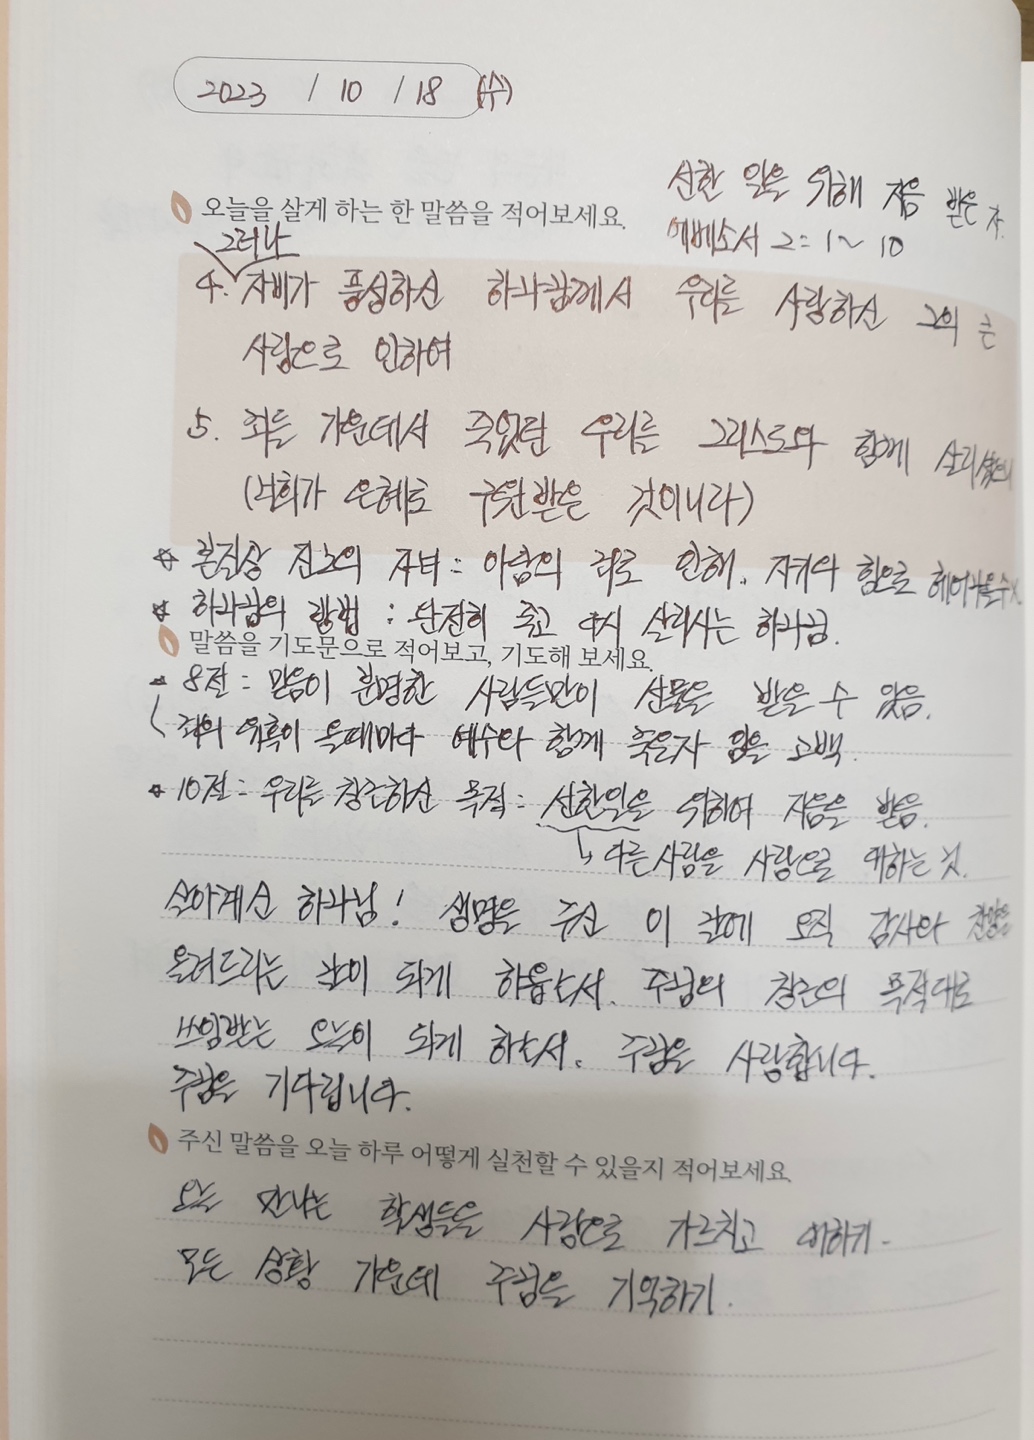 2023 / 10 / 18 (수)
선한 일을 위해 지음 받은 자.
에베소서 2:1~10
오늘을 살게 하는 한 말씀을 적어보세요.
그러나
4. 자비가 풍성하신 하나님께서 우리를 사랑하신 그의 큰
사랑으로 인하여
5. 죄들 가운데서 죽었던 우리를 그리스도와 함께 살리셨으니
(너희가 은혜로 구원받은 것이니라)
☆ 본질상 진노의 자녀 : 아담의 죄로 인해. 자기의 힘으로 헤어나올수X.
☆ 하나님의 방법 : 완전히 죽고 다시 살리시는 하나님.
말씀을 기도문으로 적어보고, 기도해 보세요.
8절 : 믿음이 분명한 사람들만이 선물을 받을 수 있음.
죄의 유혹이 올때마다 예수와 함께 죽은자 임을 고백.
☆ 10절 : 우리를 창조하신 목적 : 선한일을 위하여 지음을 받음.
↳ 다른사람을 사랑으로 대하는 것.
살아계신 하나님! 생명을 주신 이 날에 오직 감사와 찬양을
올려드리는 날이 되게 하옵소서. 주님의 창조의 목적대로
쓰임받는 오늘이 되게 하소서. 주님을 사랑합니다.
주님을 기다립니다.
주신 말씀을 오늘 하루 어떻게 실천할 수 있을지 적어보세요.
오늘 만나는 학생들을 사랑으로 가르치고 대하기.
모든 상황 가운데 주님을 기억하기.